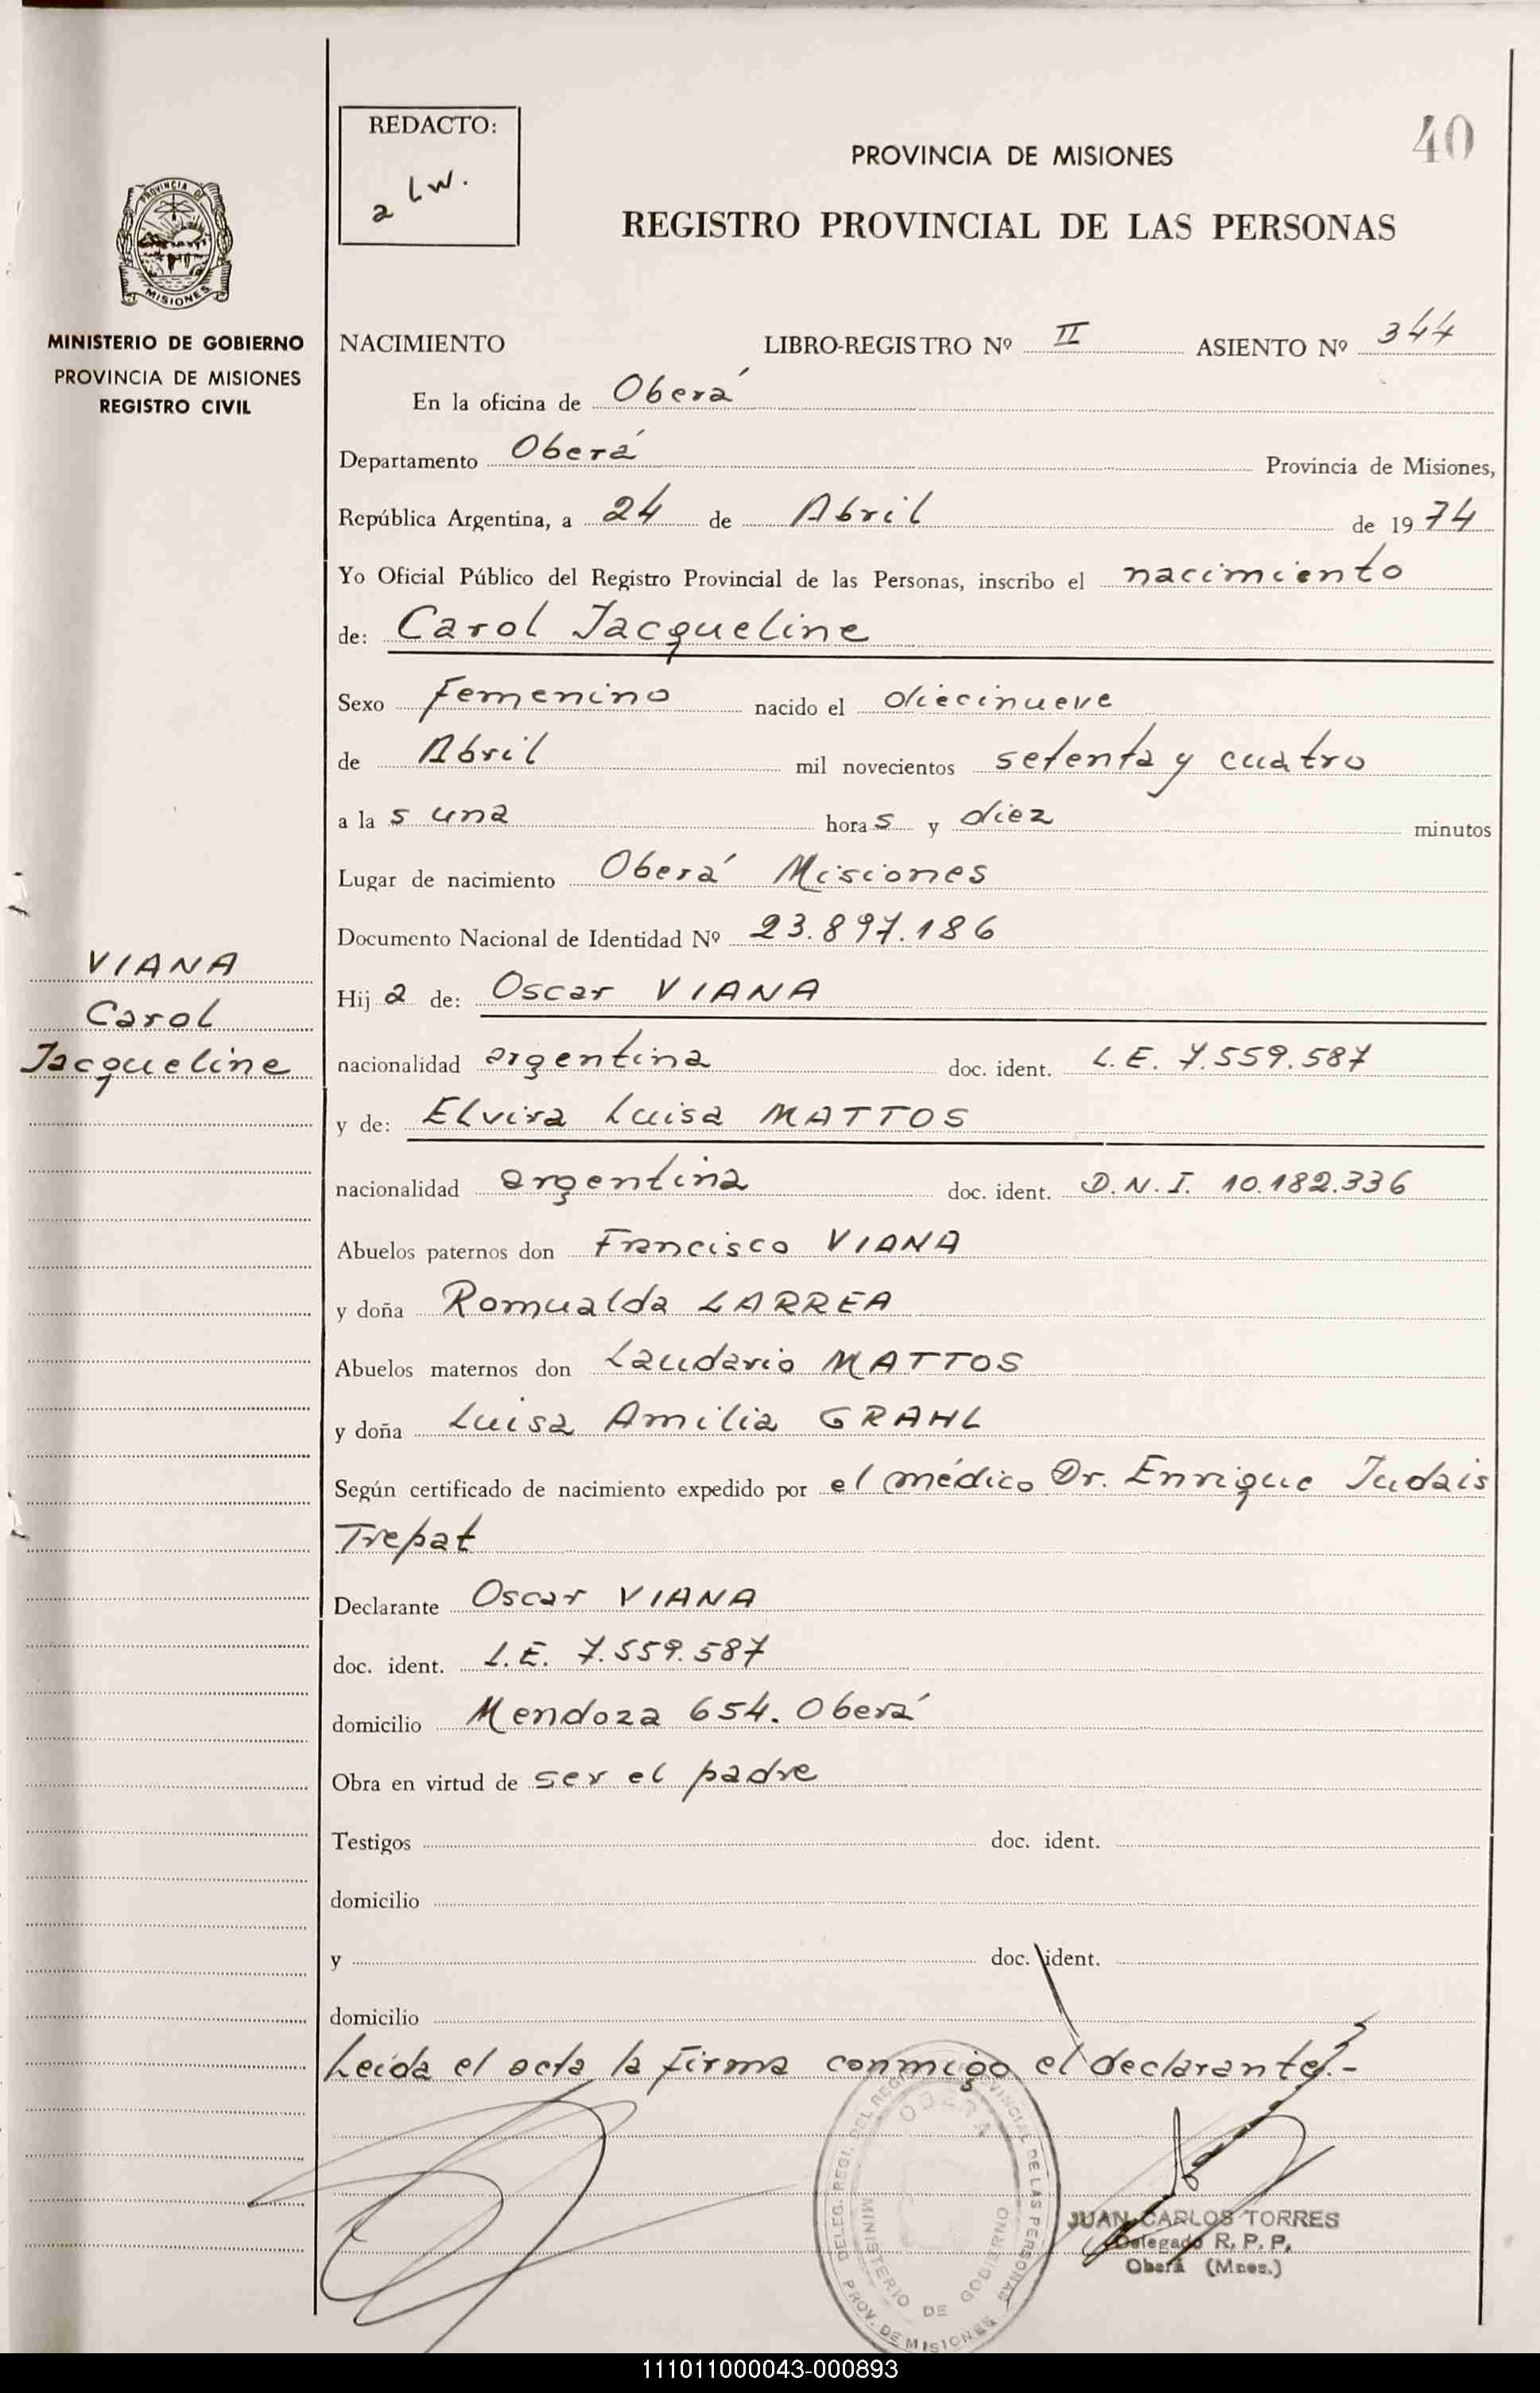 REDACTO:
a l w.
40
PROVINCIA DE MISIONES
REGISTRO PROVINCIAL DE LAS PERSONAS
PROVINCIA DE
MISIONES
MINISTERIO DE GOBIERNO
PROVINCIA DE MISIONES
REGISTRO CIVIL
NACIMIENTO LIBRO-REGISTRO Nº II ASIENTO Nº 344
En la oficina de Oberá
Departamento Oberá Provincia de Misiones,
República Argentina, a 24 de Abril de 1974
Yo Oficial Público del Registro Provincial de las Personas, inscribo el nacimiento
de: Carol Jacqueline
Sexo Femenino nacido el diecinueve
de Abril mil novecientos setenta y cuatro
a la s una hora s y diez minutos
Lugar de nacimiento Oberá Misiones
Documento Nacional de Identidad Nº 23.897.186
VIANA
Carol
Jacqueline
Hij a de: Oscar VIANA
nacionalidad argentina doc. ident. L.E. 7.559.587
y de: Elvira Luisa MATTOS
nacionalidad argentina doc. ident. D.N.I. 10.182.336
Abuelos paternos don Francisco VIANA
y doña Romualda LARREA
Abuelos maternos don Laudario MATTOS
y doña Luisa Amilia GRAHL
Según certificado de nacimiento expedido por el médico Dr. Enrique Judais
Trepat
Declarante Oscar VIANA
doc. ident. L.E. 7.559.587
domicilio Mendoza 654. Oberá
Obra en virtud de ser el padre
Testigos doc. ident.
domicilio
y doc. ident.
domicilio
Leída el acta la firma conmigo el declarante.-
DELEG. REGI. DEL REGISTRO PROVINCIAL DE LAS PERSONAS
OBERA
MINISTERIO DE GOBIERNO
PROV. DE MISIONES
JUAN CARLOS TORRES
Delegado R. P. P.
Oberá (Mnes.)
111011000043-000893